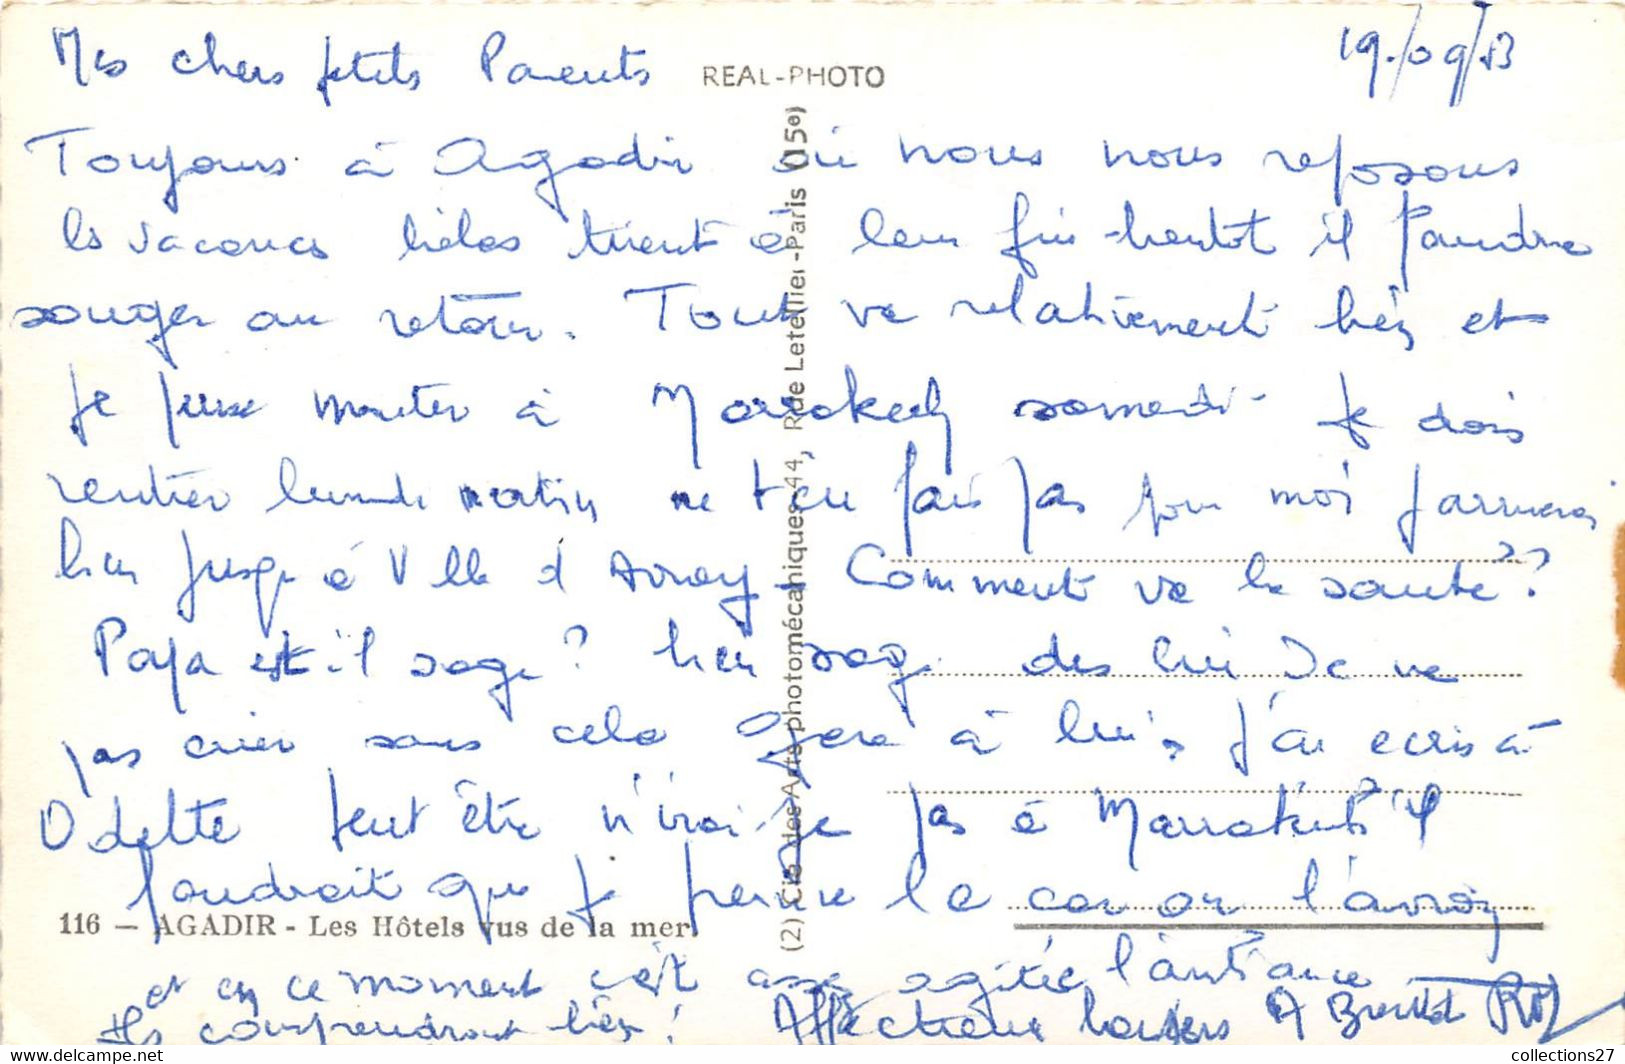 19/09/53
Mes chers petits Parents
REAL-PHOTO
Toujours à Agadir où nous nous reposons
les vacances hélas tirent à leur fin - bientot il faudra
songer au retour. Tout va relativement bien et
je pense monter à Marrakech samedi - je dois
rentrer lundi matin ne t'en fais pas pour moi j'arriverai
bien jusqu'à Ville d'Avray - Comment va la santé ??
Papa est-il sage ? bien sage dis lui Je ne
pas crier sans cela gare à lui, J'ai ecris à
Odette peut être n'irai-je pas à Marrakech il
faudrait que je prenne le car or l'avray
116 — AGADIR - Les Hôtels vus de la mer.
et en ce moment c'est assez agitée l'ambiance
Ils comprendront bien ! Affectueux baisers A Bientôt
(2) Cie des Arts photomécaniques, 44, Rue Letellier - Paris (15e)
collections27